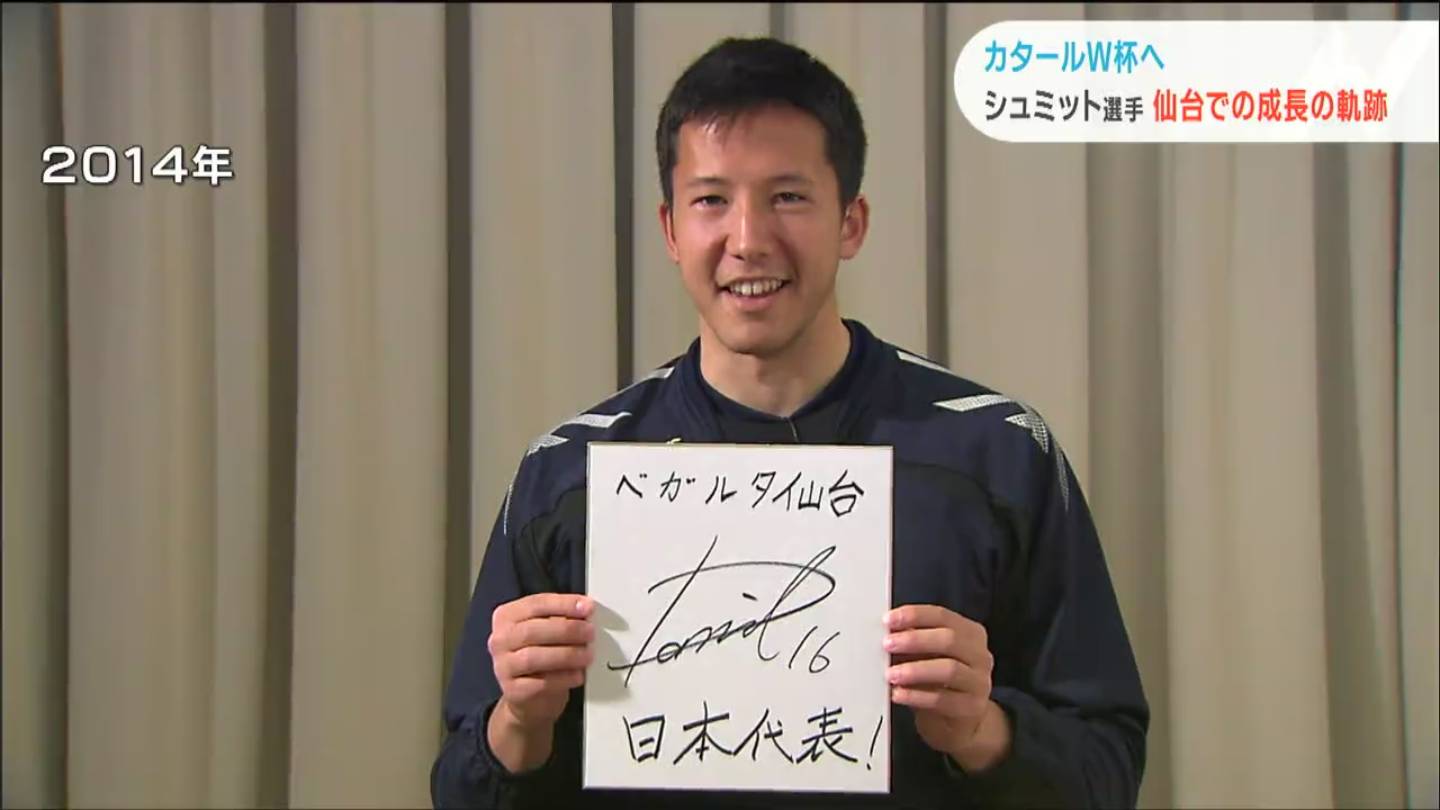 カタールW杯へ
シュミット選手 仙台での成長の軌跡
2014年
ベガルタ仙台
Daniel 16
日本代表!